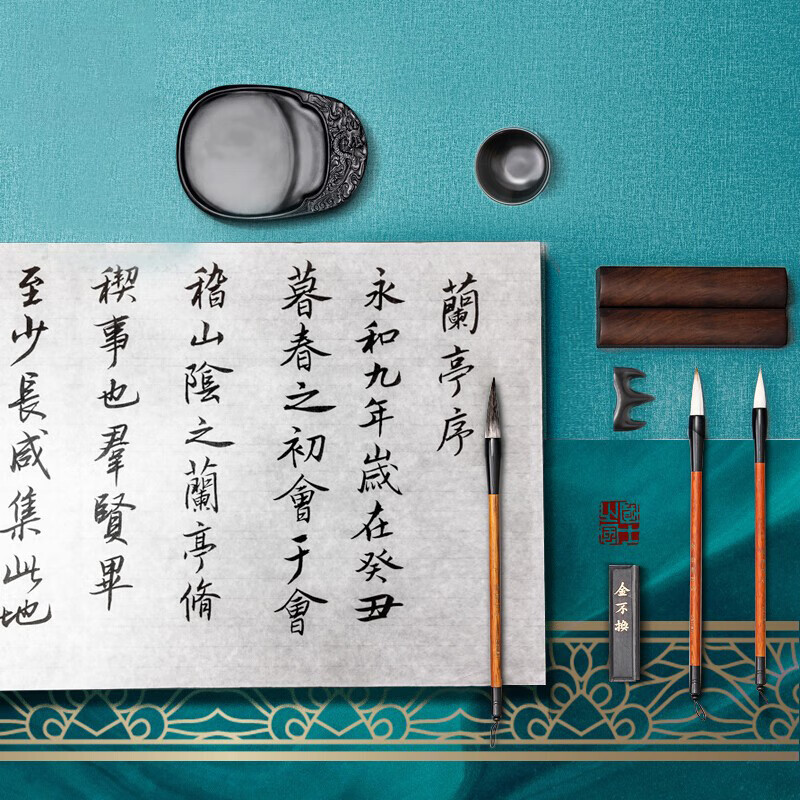 蘭亭序
永和九年歲在癸丑
暮春之初會于會
稽山陰之蘭亭脩
稧事也羣賢畢
至少長咸集此地
金不換